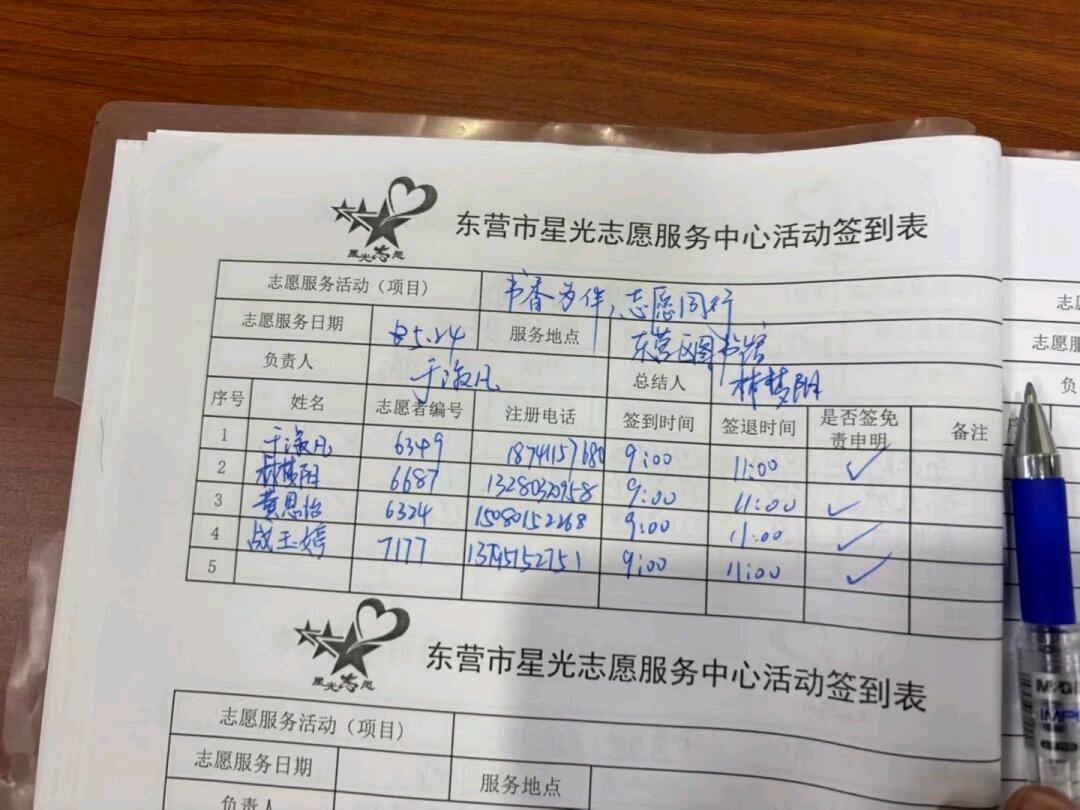 星光志愿
东营市星光志愿服务中心活动签到表
志愿服务活动（项目） 书香为伴，志愿同行
志愿服务日期 5.24 服务地点 东营区图书馆
负责人 于海凡 总结人 林梦阳
序号 姓名 志愿者编号 注册电话 签到时间 签退时间 是否签免责申明 备注
1 于海凡 6349 18741157680 9:00 11:00 ✓
2 林梦阳 6687 13280320958 9:00 11:00 ✓
3 黄思怡 6324 15080152268 9:00 11:00 ✓
4 战玉婷 7177 9:00 11:00 ✓
5
星光志愿
东营市星光志愿服务中心活动签到表
志愿服务活动（项目）
志愿服务日期 服务地点
负责人